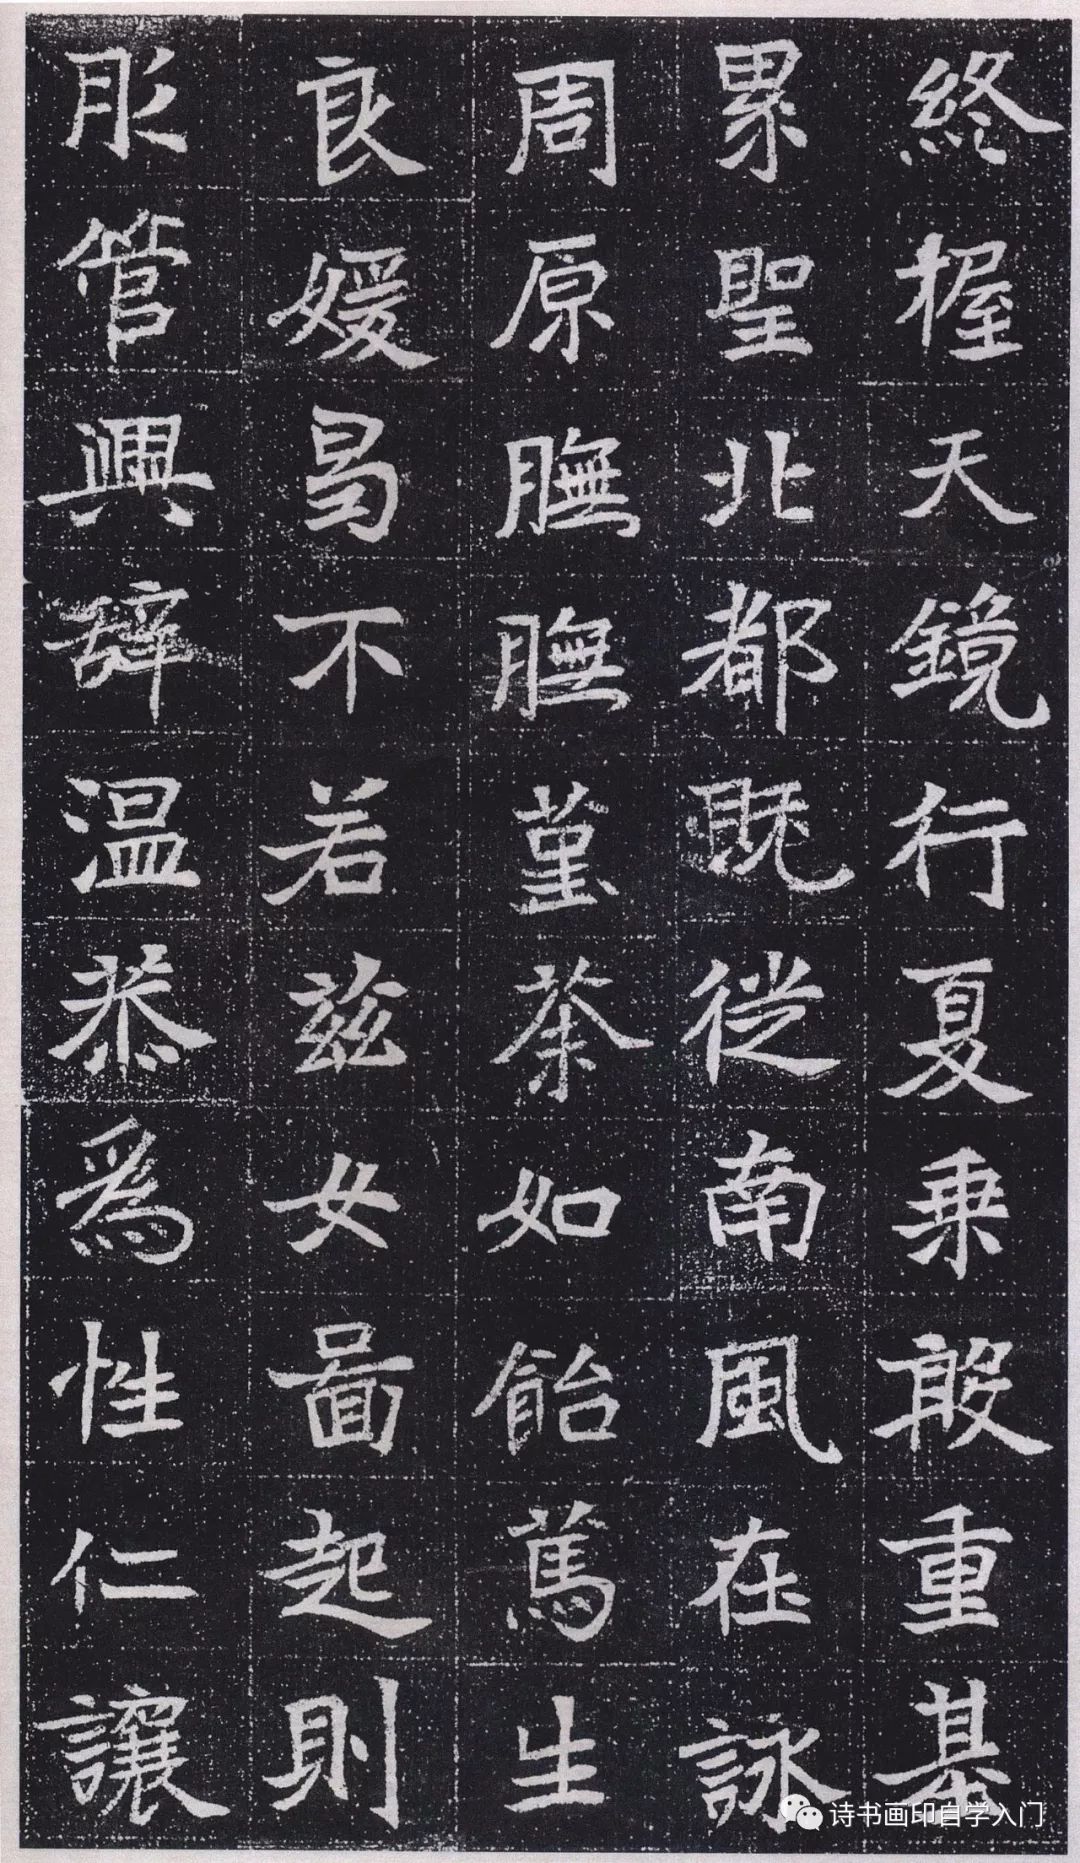 終握天鏡行夏乗殷重基
累聖北都既従南風在詠
周原膴膴菫荼如飴篤生
良媛曷不若茲女啚起則
彤管興辞温恭爲性仁讓
诗书画印自学入门